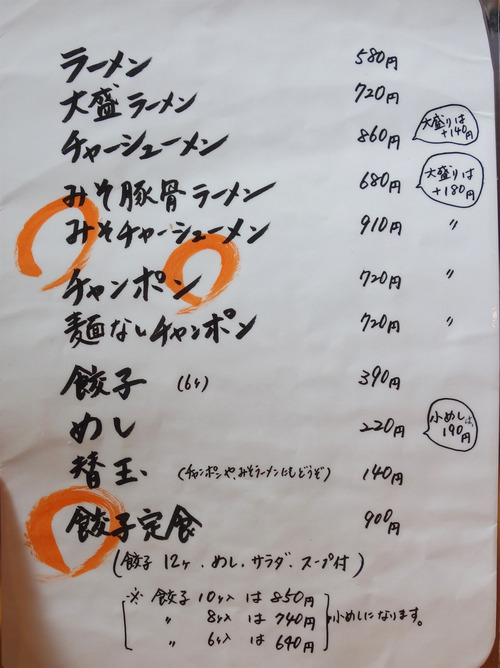 ラーメン 580円
大盛ラーメン 720円
チャーシューメン 860円 大盛りは +140円
みそ豚骨ラーメン 680円 大盛りは +180円
みそチャーシューメン 910円 〃
チャンポン 720円 〃
麺なしチャンポン 720円 〃
餃子 (6ヶ) 390円
めし 220円 小めしは、190円
替玉 (チャンポンや、みそラーメンにもどうぞ) 140円
餃子定食 900円
(餃子 12ヶ、めし、サラダ、スープ付)
※ 餃子 10ヶ入 は 850円
〃 8ヶ入 は 740円 小めしになります。
〃 6ヶ入 は 640円